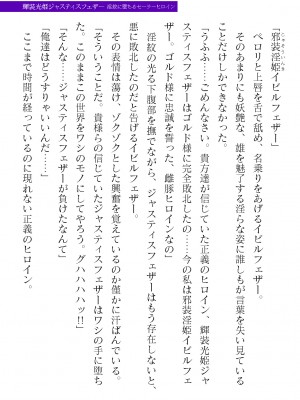 輝装光姫ジャスティスフェザー 淫紋に堕ちるセーラーヒロイン
「邪装淫姫イビルフェザー」
ペロリと上唇を舌で舐め、名乗りをあげるイビルフェザー。
そのあまりにも妖艶な、雄を魅了する淫らな姿に誰しもが言葉を失い見ている
ことだけしかできなかった。
「うふふ……ごめんなさい。貴方達が信じていた正義のヒロイン、輝装光姫ジャ
スティスフェザーはゴルド様に完全敗北したの……今の私は邪装淫姫イビルフェ
ザー。ゴルド様に忠誠を誓った、雌豚ヒロインなの」
淫紋の光る下腹部を撫でながら、ジャスティスフェザーはもう存在しないと、
悪に敗北したのだと告げるイビルフェザー。
その表情は蕩け、ゾクゾクとした興奮を覚えているのか僅かに汗ばんでいる。
「そういうことだ。貴様らの信じていたジャスティスフェザーはワシの手に堕ち
た。このままこの世界をワシのモノにしてやろう。グハハハハッ!!」
「そんな……ジャスティスフェザーが負けたなんて」
「俺達はどうすりゃいいんだ……」
ここまで時間が経っているのに現れない正義のヒロイン。